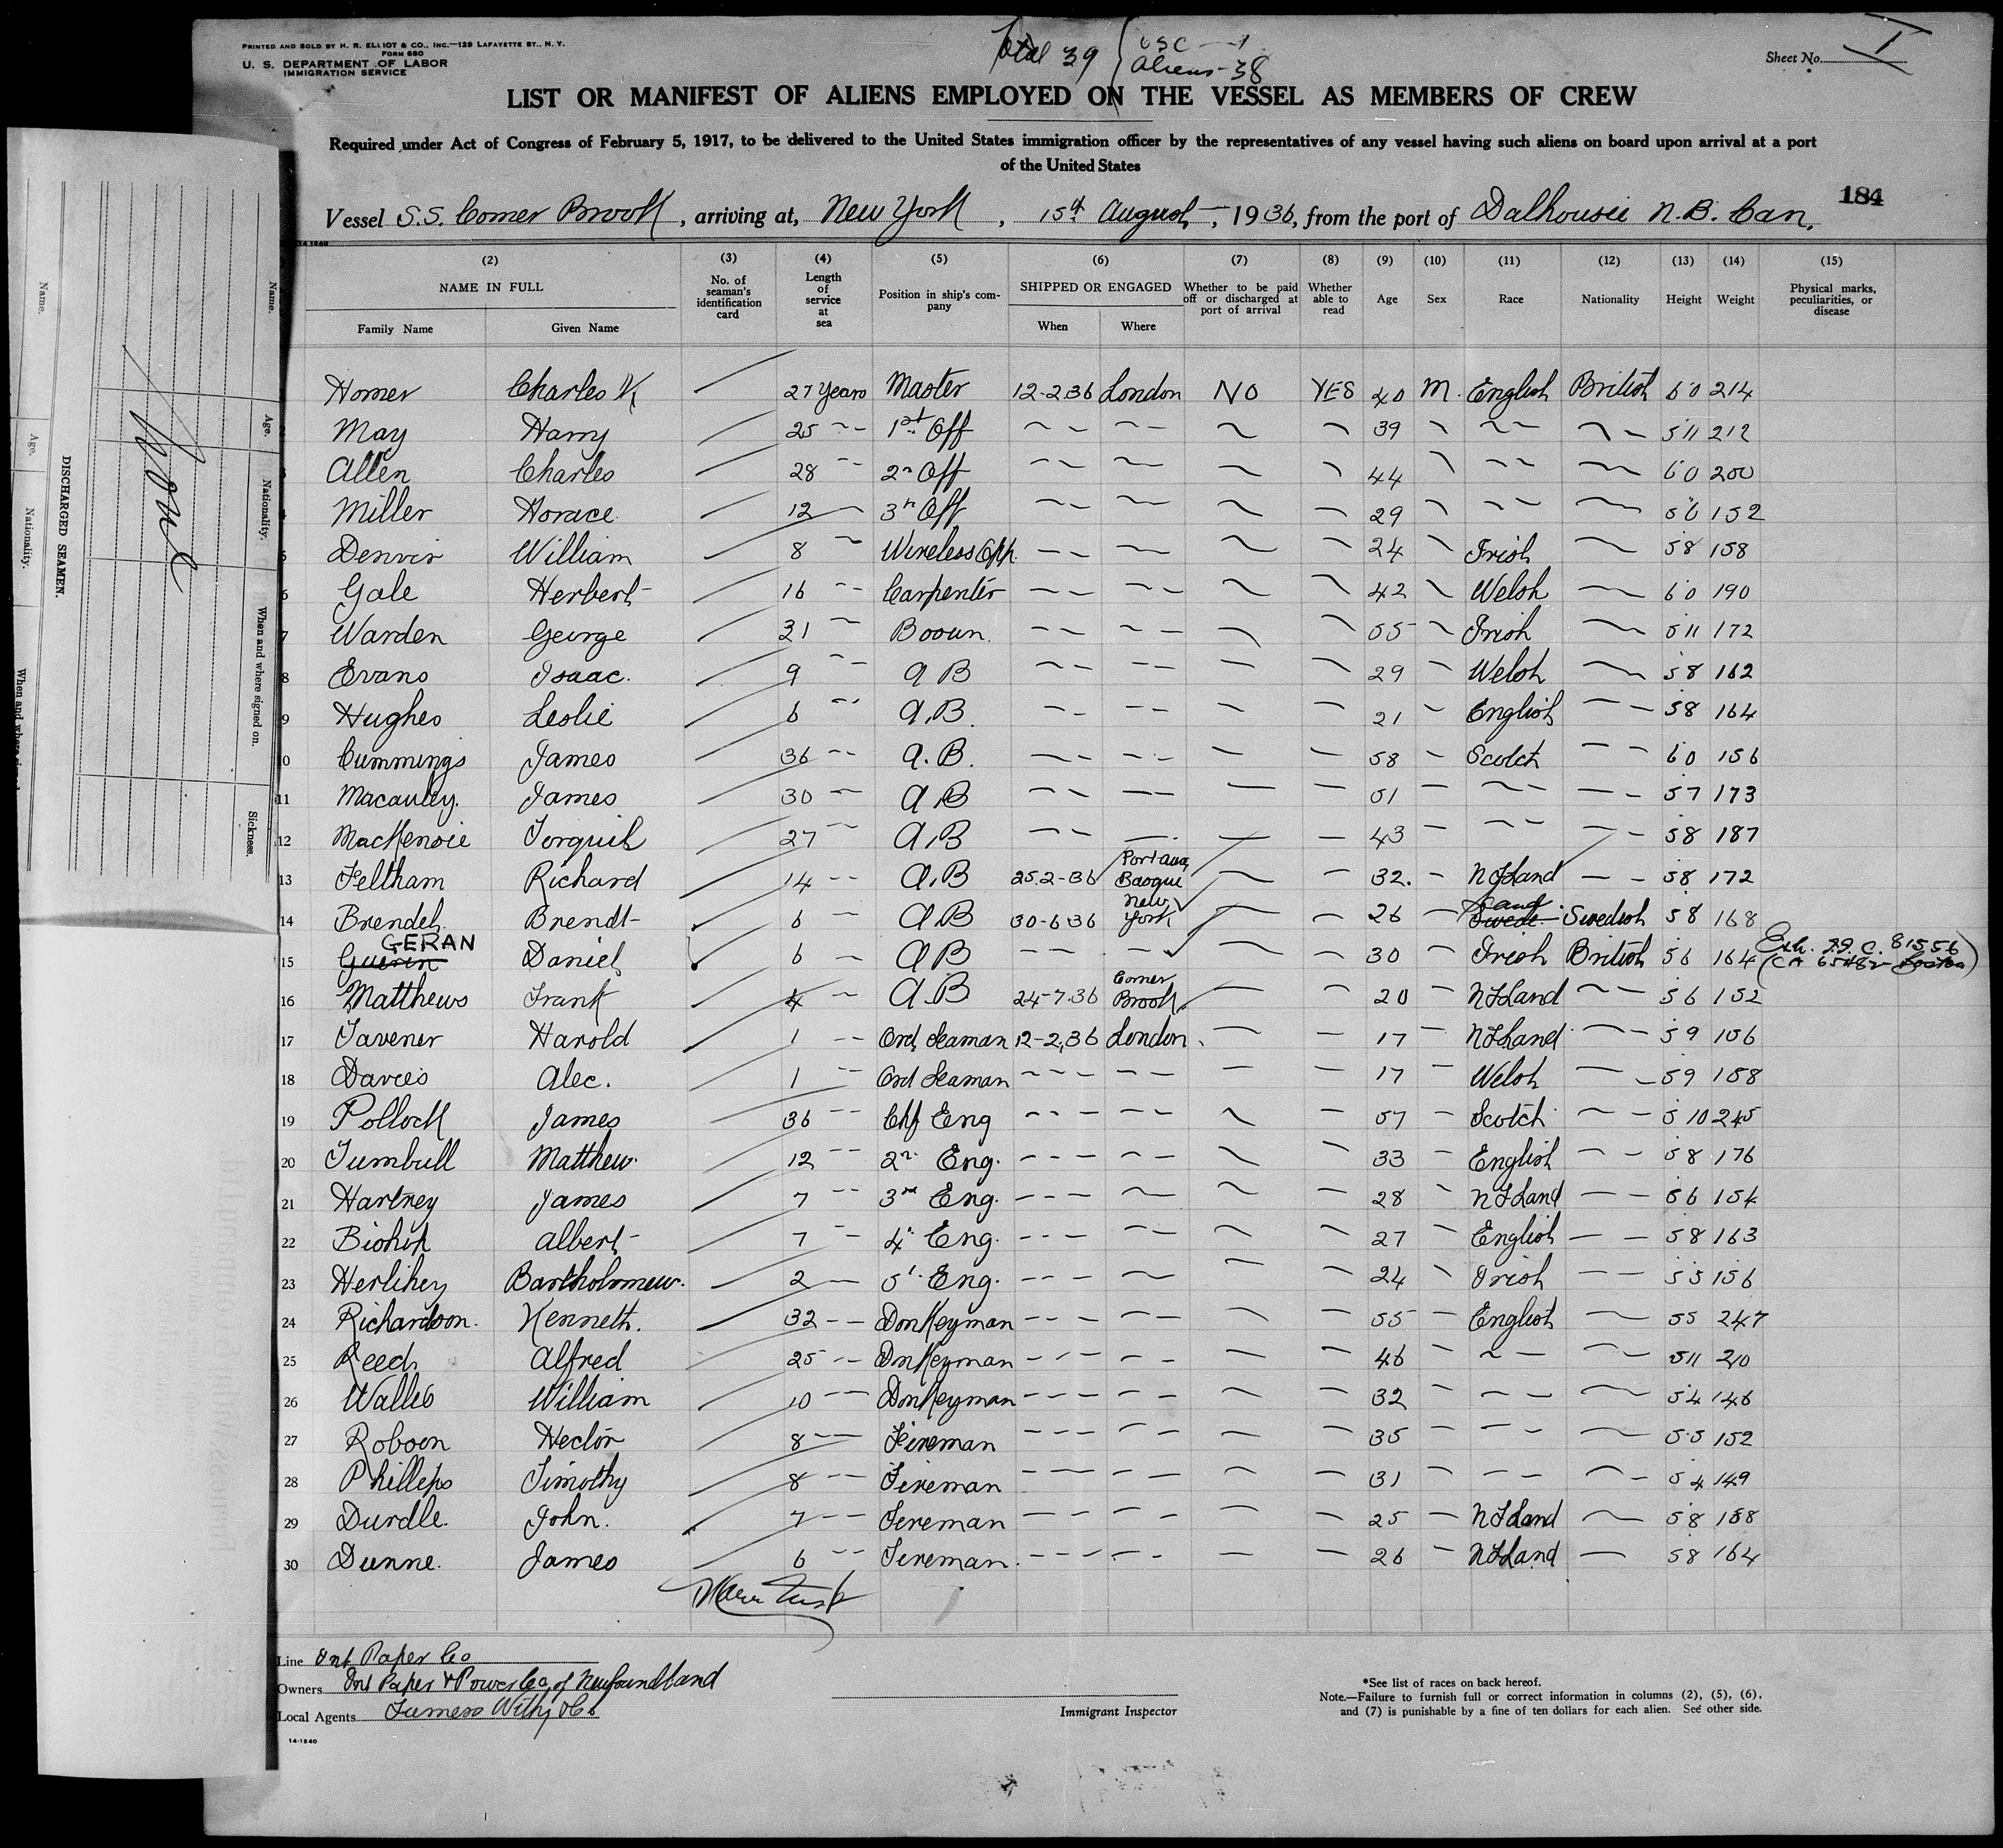 PRINTED AND SOLD BY H. R. ELLIOT & CO., INC.—129 LAFAYETTE ST., N. Y.
FORM 680
U. S. DEPARTMENT OF LABOR
IMMIGRATION SERVICE
Total 39 { USC — 1
Aliens - 38
Sheet No. I
LIST OR MANIFEST OF ALIENS EMPLOYED ON THE VESSEL AS MEMBERS OF CREW
Required under Act of Congress of February 5, 1917, to be delivered to the United States immigration officer by the representatives of any vessel having such aliens on board upon arrival at a port
of the United States
184
Vessel S.S. Corner Brook, arriving at, New York, 15th August, 1936, from the port of Dalhousie N.B. Can.
14-1240
(2) NAME IN FULL Family Name Given Name (3) No. of seaman's identification card (4) Length of service at sea (5) Position in ship's company (6) SHIPPED OR ENGAGED When Where (7) Whether to be paid off or discharged at port of arrival (8) Whether able to read (9) Age (10) Sex (11) Race (12) Nationality (13) Height (14) Weight (15) Physical marks, peculiarities, or disease
Homer Charles 27 Years Master 12-2.36 London NO YES 40 M. English British 6 0 214
2 May Harry 25 -- 1st Off -- -- 39 -- 5 11 212
3 Allen Charles 28 -- 2n Off -- -- 44 -- 6 0 200
4 Miller Horace 12 -- 3r Off -- -- 29 -- 5 6 152
5 Denvir William 8 -- Wireless Opp. -- -- 24 Irish -- 5 8 158
6 Gale Herbert 16 -- Carpenter -- -- 42 Welsh -- 6 0 190
7 Warden George 31 -- Bosun. -- -- 55 Irish -- 5 11 172
8 Evans Isaac. 9 -- A B -- -- 29 Welsh -- 5 8 162
9 Hughes Leslie 6 -- A.B. -- -- 21 English -- 5 8 164
10 Cummings James 36 -- A.B. -- -- 58 Scotch -- 6 0 156
11 Macauley. James 30 -- A.B -- -- 51 -- -- 5 7 173
12 MacKensie Torquil 27 -- A.B -- -- 43 -- -- 5 8 187
13 Feltham Richard 14 -- A.B 25.2-36 Port aux Basque -- 32. NFLand -- 5 8 172
14 Brendel Brendt 6 -- A.B 30-6.36 New York -- 26 Swede Scand. Swedish 5 8 168
15 Guerin GERAN Daniel 6 -- A B -- -- 30 Irish British 5 6 164 81556
16 Matthews Frank 4 -- A.B 24-7.36 Corner Brook -- 20 NFLand -- 5 6 152
17 Tavener Harold 1 -- Ord. Seaman 12-2.36 London -- 17 NFLand -- 5 9 156
18 Davies Alec. 1 -- Ord Seaman -- -- 17 Welsh -- 5 9 158
19 Pollock James 36 -- Chf Eng -- -- 57 Scotch -- 5 10 245
20 Turnbull Matthew. 12 -- 2n. Eng. -- -- 33 English -- 5 8 176
21 Hartney James 7 -- 3rd Eng. -- -- 28 NFLand -- 5 6 154
22 Bishop Albert 7 -- 4. Eng. -- -- 27 English -- 5 8 163
23 Herlihey Bartholomew. 2 -- 5t. Eng. -- -- 24 Irish -- 5 5 156
24 Richardson. Kenneth. 32 -- Donkeyman -- -- 55 English -- 5 5 247
25 Reed Alfred 25 -- Donkeyman -- -- 46 -- -- 5 11 210
26 Wallis William 10 -- Donkeyman -- -- 32 -- -- 5 4 146
27 Robson Hector 8 -- Fireman -- -- 35 -- -- 5.5 152
28 Phillips Timothy 8 -- Fireman -- -- 31 -- -- 5 4 149
29 Durdle. John. 7 -- Fireman -- -- 25 NFLand -- 5 8 158
30 Dunne. James 6 -- Fireman. -- -- 26 NFLand -- 5 8 164
Line Int Paper Co
Owners Int Paper & Power Co, of Newfoundland
Local Agents Furness Withy & Co
14-1240
Immigrant Inspector
*See list of races on back hereof.
Note.—Failure to furnish full or correct information in columns (2), (5), (6),
and (7) is punishable by a fine of ten dollars for each alien. See other side.
DISCHARGED SEAMEN.
Name. Age. Nationality. When and where signed on. Sickness.
None
Name. Age. Nationality. When and where